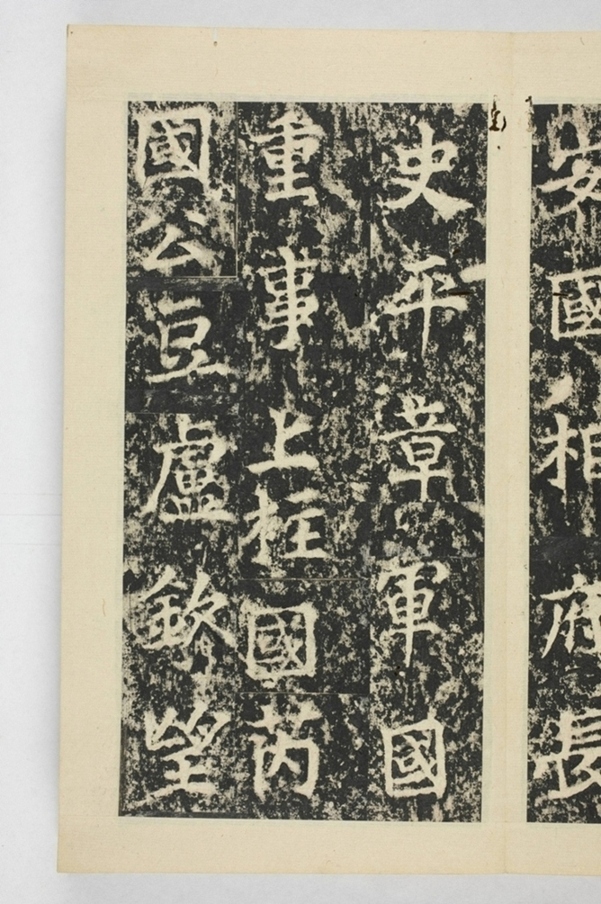 安國相府長
史平章軍國
重事上柱國芮
國公豆盧欽望